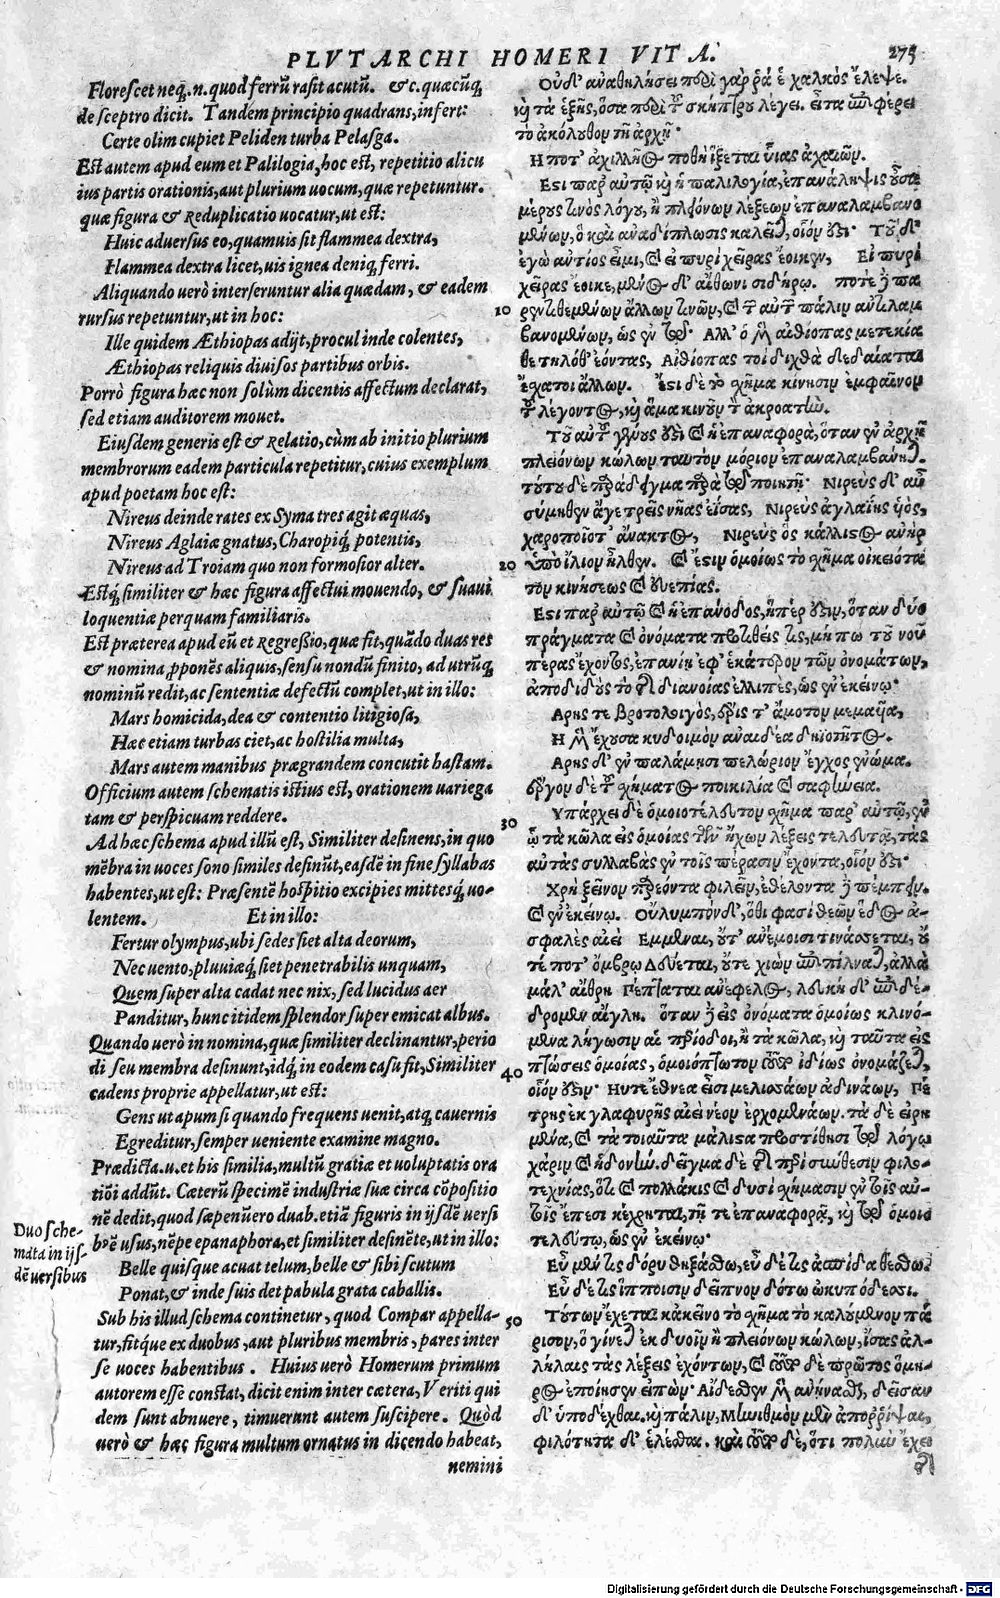 PLVTARCHI HOMERI VITA.
275
Florescet neq́. n. quod ferrũ rasit acutũ. & c. quæcũq́
de sceptro dicit. Tandem principio quadrans, infert:
Certe olim cupiet Peliden turba Pelasga.
Est autem apud eum et Palilogia, hoc est, repetitio alicu
ius partis orationis, aut plurium uocum, quæ repetuntur.
quæ figura & Reduplicatio uocatur, ut est:
Huic aduersus eo, quamuis sit flammea dextra,
Flammea dextra licet, uis ignea deniq́; ferri.
Aliquando uerò interseruntur alia quædam, & eadem
rursus repetuntur, ut in hoc:
Ille quidem Æthiopas adijt, procul inde colentes,
Æthiopas reliquis diuisos partibus orbis.
Porrò figura hæc non solùm dicentis affectum declarat,
sed etiam auditorem mouet.
Eiusdem generis est & Relatio, cùm ab initio plurium
membrorum eadem particula repetitur, cuius exemplum
apud poetam hoc est:
Nireus deinde rates ex Syma tres agit æquas,
Nireus Aglaiæ gnatus, Charopiq́; potentis,
Nireus ad Troiam quo non formosior alter.
Estq́; similiter & hæc figura affectui mouendo, & suaui
loquentiæ perquam familiaris.
Est præterea apud eũ et Regreßio, quæ fit, quãdo duas res
& nomina ꝓponẽs aliquis, sensu nondũ finito, ad utrũq́;
nominũ redit, ac sententiæ defectũ complet, ut in illo:
Mars homicida, dea & contentio litigiosa,
Hæc etiam turbas ciet, ac hostilia multa,
Mars autem manibus prægrandem concutit hastam.
Officium autem schematis istius est, orationem uariega
tam & perspicuam reddere.
Ad hæc schema apud illũ est, Similiter desinens, in quo
mẽbra in uoces sono similes desinũt, easdẽ in fine syllabas
habentes, ut est: Præsentẽ hospitio excipies mittesq́; uo-
lentem. Et in illo:
Fertur olympus, ubi sedes siet alta deorum,
Nec uento, pluuiæq́; siet penetrabilis unquam,
Quem super alta cadat nec nix, sed lucidus aer
Panditur, hunc itidem splendor super emicat albus.
Quando uerò in nomina, quæ similiter declinantur, perio
di seu membra desinunt, idq́; in eodem casu fit, Similiter
cadens proprie appellatur, ut est:
Gens ut apum si quando frequens uenit, atq́; cauernis
Egreditur, semper ueniente examine magno.
Prædicta. u. et his similia, multũ gratiæ et uoluptatis ora
tiõi addũt. Cæterũ specimẽ industriæ suæ circa cõpositio
nẽ dedit, quod sæpenũero duab. etiã figuris in ijsdẽ uersi
bꝰ est usus, nẽpe epanaphora, et similiter desinẽte, ut in illo:
Duo sche-
mata in ijs-
dẽ uersibus
Belle quisque acuat telum, belle & sibi scutum
Ponat, & inde suis det pabula grata caballis.
Sub his illud schema continetur, quod Compar appella-
tur, fitq́ue ex duobus, aut pluribus membris, pares inter
se uoces habentibus. Huius uerò Homerum primum
autorem esse constat, dicit enim inter cætera, Veriti qui
dem sunt abnuere, timuerunt autem suscipere. Quòd
uerò & hæc figura multum ornatus in dicendo habeat,
nemini
10
20
30
40
50
Οὐδ' ἀναθηλήσει περὶ γαρ ῥά ἑ χαλκὸς ἔλεψε.
κ̀ τὰ ἑξῆς, ὅσα περὶ τ͂ σκήπτρου λέγει. εἶτα ἐπιφέρει
τὸ ἀκόλουθον τῇ ἀρχῇ·
Η ποτ' ἀχιλλῆος ποθὴ ἵξεται υἷας ἀχαιῶν.
Εστι παρ' αὐτῷ κ̀ ἡ παλιλογία, ἐπανάληψις οὖσα
μέρους τινὸς λόγου, ἢ πλειόνων λέξεων ἐπαναλαμβανο
μένων, ὃ καὶ ἀναδίπλωσις καλεῖται, οἷόν ἐστι· Τοῦ δ'
ἐγὼ ἀντίος εἶμι, καὶ εἰ πυρὶ χεῖρας ἔοικεν, Εἰ πυρὶ
χεῖρας ἔοικε, μένος δ' αἴθωνι σιδήρῳ. ποτὲ ἢ πα
ρεντιθεμένων ἄλλων τινῶν, καὶ τ͂ αὐτ͂ πάλιν ἀντιλαμ
βανομένων, ὡς ἐν τῷ· Αλλ' ὁ μὲν αἰθίοπας μετεκία
θε τηλόθ' ἐόντας, Αἰθίοπας τοὶ διχθὰ δεδαίαται
ἔσχατοι ἄλλων. ἔστι δὲ τὸ σχῆμα κίνησιν ἐμφαῖνον
τ͂ λέγοντος, κ̀ ἅμα κινοῦν τ̀ ἀκροατήν.
Τοῦ αὐτ͂ γένους ἐστὶ καὶ ἡ ἐπαναφορὰ, ὅταν ἐν ἀρχῇ
πλειόνων κώλων ταυτὸν μόριον ἐπαναλαμβάνηται.
τούτου δὲ παράδειγμα παρὰ τῷ ποιητῇ· Νιρεὺς δ' αὖ
σύμηθεν ἄγε τρεῖς νῆας ἐΐσας, Νιρεὺς ἀγλαΐης ὑὸς,
χαρόποιό τ' ἄνακτος, Νιρεὺς ὃς κάλλιστος ἀνὴρ
ὑπὸ ἴλιον ἦλθεν. καὶ ἔστιν ὁμοίως τὸ σχῆμα οἰκειότα
τον κινήσεως καὶ εὐεπίας.
Εστι παρ' αὐτῷ καὶ ἡ ἐπάνοδος, ἥπερ ἐστὶν, ὅταν δύο
πράγματα καὶ ὀνόματα προθείς τις, μήπω τοῦ νοῦ
πέρας ἔχοντος, ἐπανίῃ ἐφ' ἑκάτερον τῶν ὀνομάτων,
ἀποδιδοὺς τὸ τῆς διανοίας ἐλλιπὲς, ὡς ἐν ἐκείνῳ·
Αρης τε βροτολοιγὸς, ἔρις τ' ἄμοτον μεμαυῖα,
Η μὲν ἔχουσα κυδοιμὸν ἀναιδέα δηιοτῆτος.
Αρης δ' ἐν παλάμῃσι πελώριον ἔγχος ἐνώμα.
ἔργον δὲ τ͂ σχήματος ποικιλία καὶ σαφήνεια.
Υπάρχει δὲ ὁμοιοτέλευτον σχῆμα παρ' αὐτῷ, ἐν
ᾧ τὰ κῶλα εἰς ὁμοίας τὴν ἦχων λέξεις τελευτᾷ, τὰς
αὐτὰς συλλαβὰς ἐν τοῖς πέρασιν ἔχοντα, οἷόν ἐστι·
Χρὴ ξεῖνον παρεόντα φιλεῖν, ἐθέλοντα ἢ πέμπειν.
καὶ ἐν ἐκείνῳ. Οὔλυμπόνδ', ὅθι φασὶ θεῶν ἕδος ἀ-
σφαλὲς αἰεὶ Εμμεναι, οὔτ' ἀνέμοισι τινάσσεται, οὔ
τέ ποτ' ὄμβρῳ Δεύεται, οὔτε χιὼν ἐπιπίλναται, ἀλλὰ
μάλ' αἴθρη Πέπταται ἀνέφελος, λευκὴ δ' ἐπιδέ-
δρομεν αἴγλη. ὅταν ἢ εἰς ὀνόματα ὁμοίως κλινό-
μενα λήγωσιν αἱ περίοδοι, ἢ τὰ κῶλα, κ̀ ταῦτα εἰς
πτώσεις ὁμοίας, ὁμοιόπτωτον τοῦτο ἰδίως ὀνομάζεται,
οἷόν ἐστιν· Ηυτε ἔθνεα εἶσι μελισσάων ἀδινάων, Πέ
τρης ἐκ γλαφυρῆς αἰεὶ νέον ἐρχομενάων. τὰ δὲ εἰρη
μένα, καὶ τὰ τοιαῦτα μάλιστα προστίθησι τῷ λόγῳ
χάριν καὶ ἡδονήν. δεῖγμα δὲ τῆς περὶ σύνθεσιν φιλο-
τεχνίας, ὅτι καὶ πολλάκις καὶ δυσὶ σχήμασιν ἐν τοῖς αὐ-
τοῖς ἔπεσι κέχρηται, τῇ τε ἐπαναφορᾷ, κ̀ τῷ ὁμοιο
τελεύτῳ, ὡς ἐν ἐκείνῳ·
Εὖ μέν τις δόρυ θηξάσθω, εὖ δέ τις ἀσπίδα θέσθω.
Εὖ δέ τις ἵπποισιν δεῖπνον δότω ὠκυπόδεσσι.
Τούτων ἔχεται κἀκεῖνο τὸ σχῆμα τὸ καλούμενον πά
ρισον, ὃ γίνεται ἐκ δυοῖν ἢ πλειόνων κώλων, ἴσας ἀλ-
λήλαις τὰς λέξεις ἐχόντων, καὶ τοῦτο δὲ πρῶτος ὅμη-
ρος ἐποίησεν εἰπών· Αἴδεσθεν μὲν ἀνήνασθαι, δεῖσαν
δ' ὑποδέχθαι. κ̀ πάλιν, Μηνιθμὸν μὲν ἀπορρῖψαι,
φιλότητα δ' ἑλέσθαι. καὶ τοῦτο δὲ, ὅτι πολὺν ἔχει
τῆς
Digitalisierung gefördert durch die Deutsche Forschungsgemeinschaft - DFG